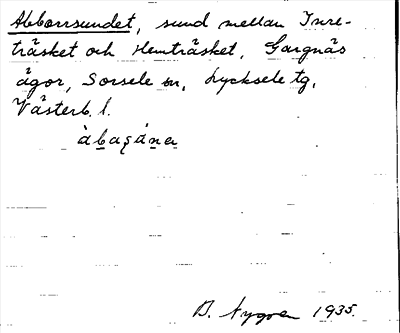 Abborrsundet, sund mellan Inre-
träsket och Hemträsket, Gargnäs
ägor, Sorsele sn, Lycksele tg,
Västerb. l.
1935.